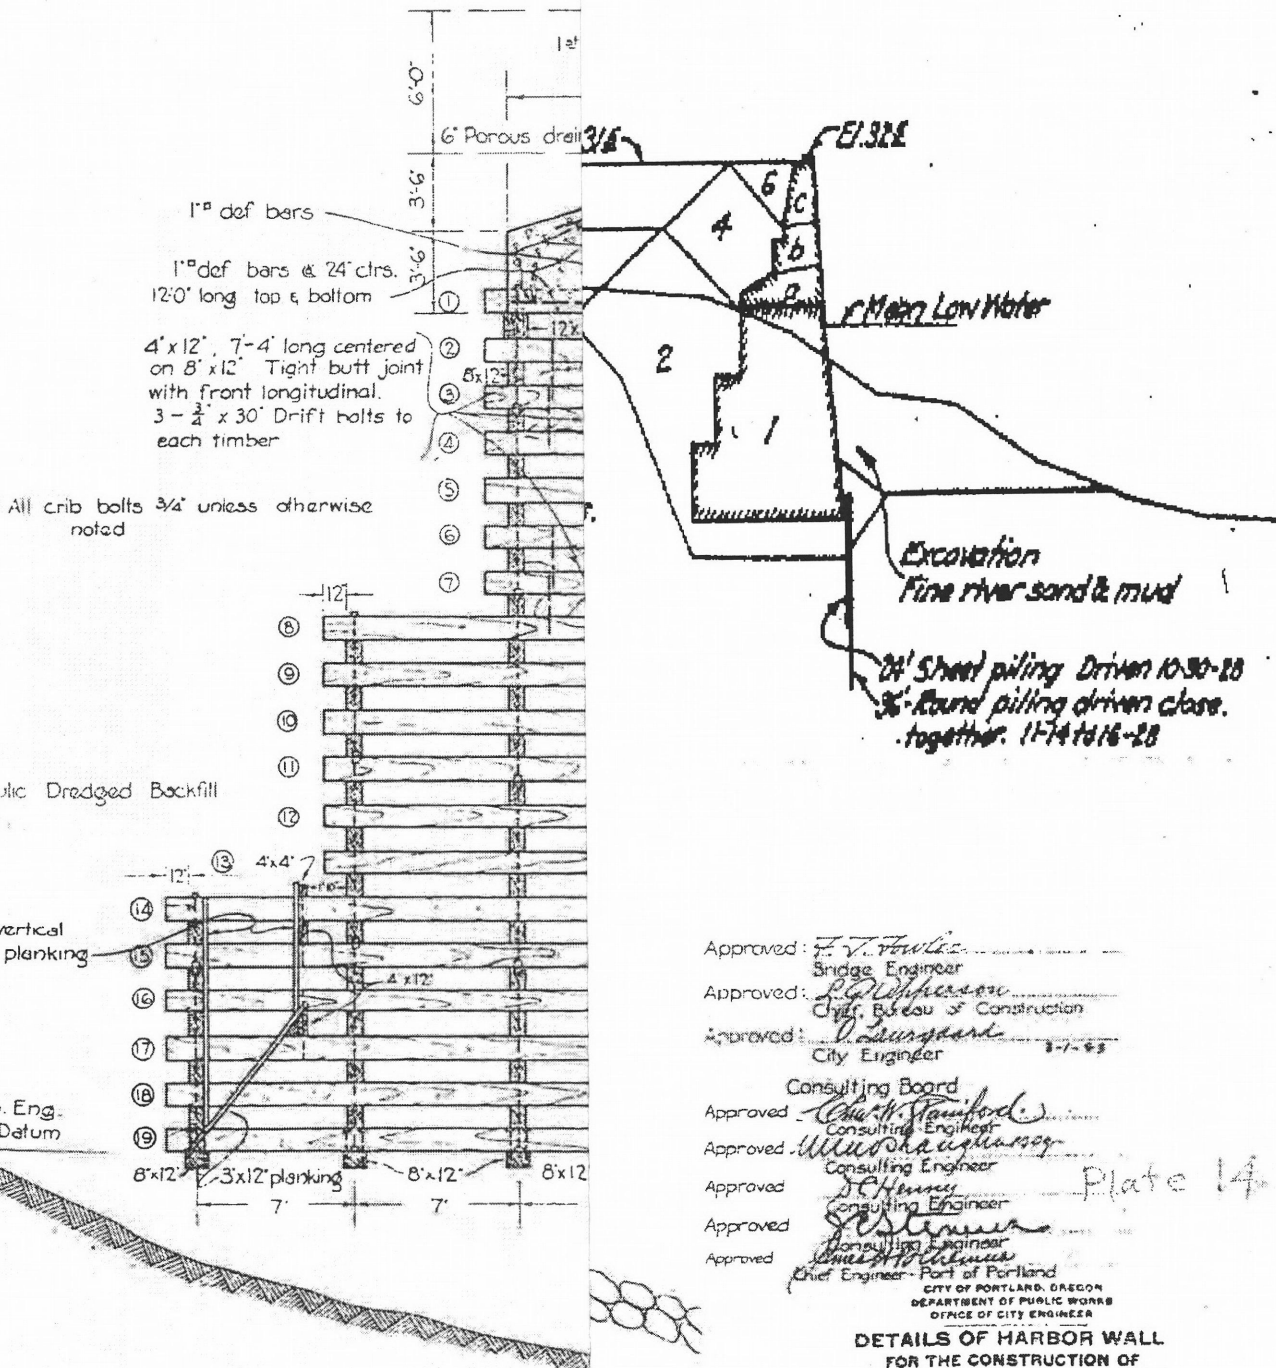 6'-0"
1st
6" Porous drain
3'-6"
1"□ def bars
3'-6"
1"□ def bars @ 24" ctrs.
12'-0" long top & bottom
1
12"x
4" x 12", 7'-4" long centered
on 8" x 12" Tight butt joint
with front longitudinal.
3 - 3/4" x 30" Drift bolts to
each timber
2
8"x12"
3
4
All crib bolts 3/4" unless otherwise
noted
5
6
7
12"
8
9
10
11
ulic Dredged Backfill
12
13
4"x4"
12"
14
vertical
planking
15
4"x12"
16
17
18
. Eng.
Datum
19
8"x12"
3"x12" planking
8"x12"
8"x12
7'
7'
El. 32±
6
c
4
b
a
Mean Low Water
2
1
Excavation
Fine river sand & mud
24' Sheet piling Driven 10-30-28
36' Round piling driven close
together. 11-14 to 16-28
Approved:
Bridge Engineer
Approved:
Chief, Bureau of Construction
Approved: O. Laurgaard
City Engineer
Consulting Board
Approved
Consulting Engineer
Approved
Consulting Engineer
Approved D C Henny
Consulting Engineer
Approved
Consulting Engineer
Approved
Chief Engineer - Port of Portland
Plate 14
CITY OF PORTLAND, OREGON
DEPARTMENT OF PUBLIC WORKS
OFFICE OF CITY ENGINEER
DETAILS OF HARBOR WALL
FOR THE CONSTRUCTION OF